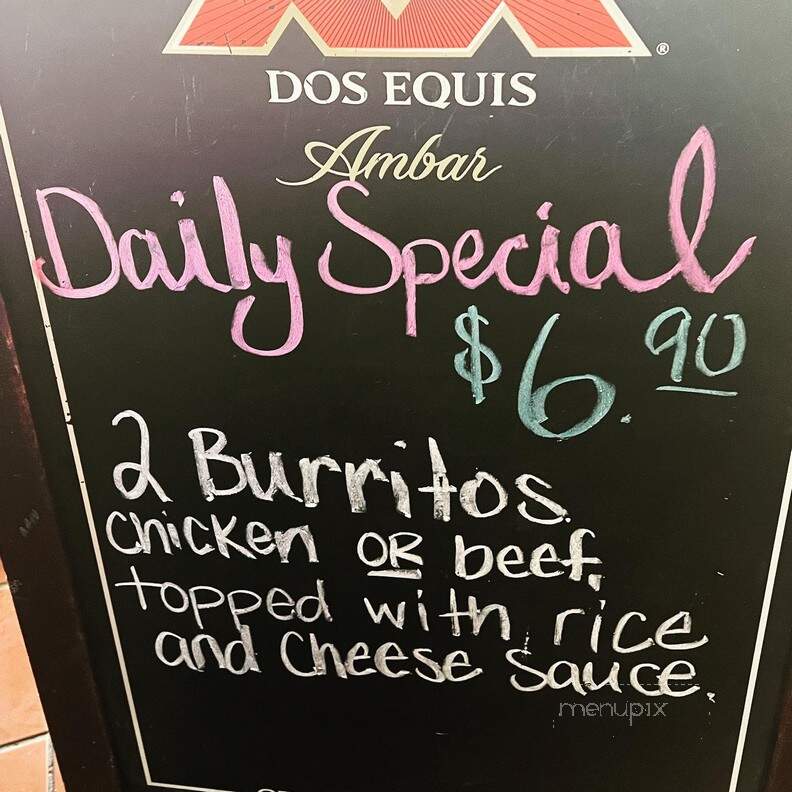 ®
DOS EQUIS
Ambar
Daily Special
$6.90
2 Burritos.
chicken OR beef,
topped with rice
and cheese sauce.
menupix